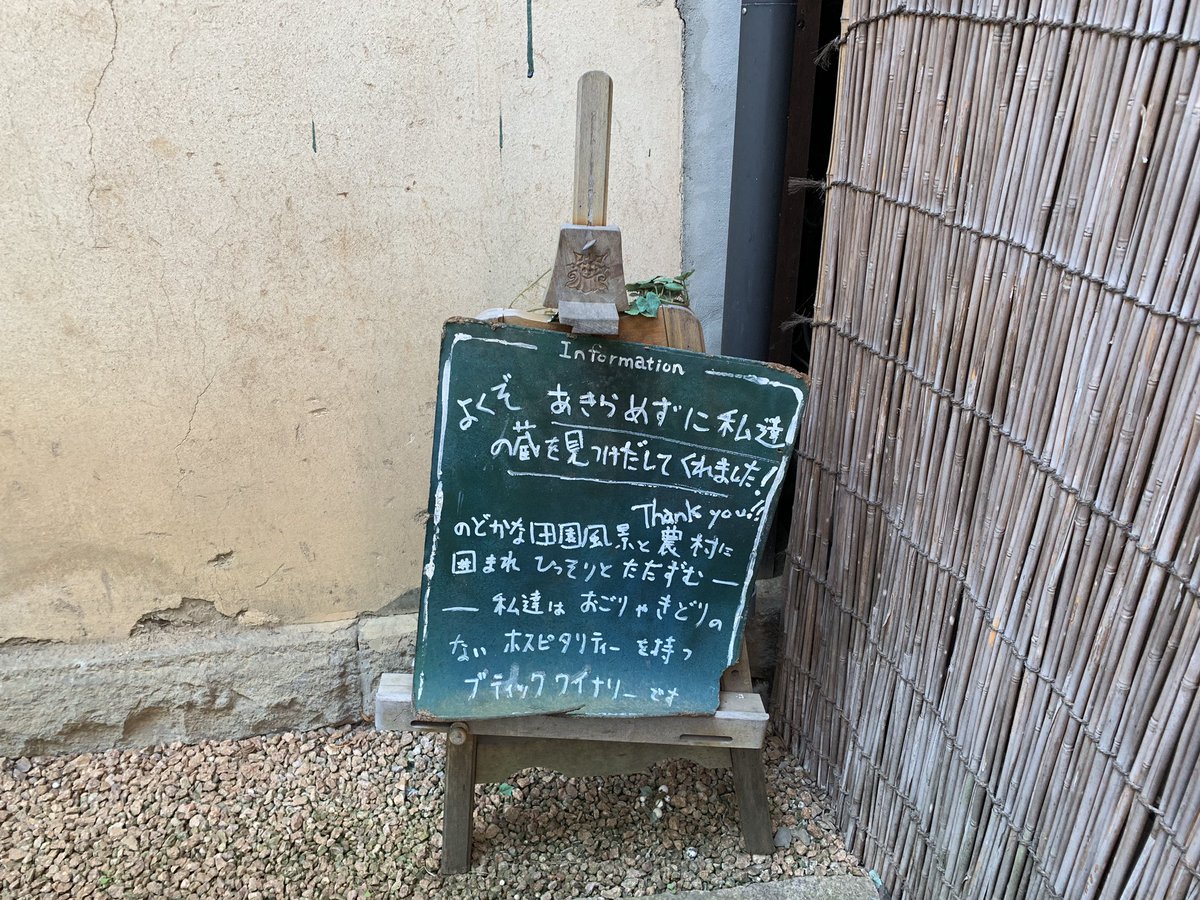 Information
よくぞ あきらめずに私達
の蔵を見つけだしてくれました!
Thank you!!
のどかな田園風景と農村に
囲まれ ひっそりとたたずむ ―
― 私達は おごりやきどりの
ない ホスピタリティーを持つ
ブティックワイナリーです